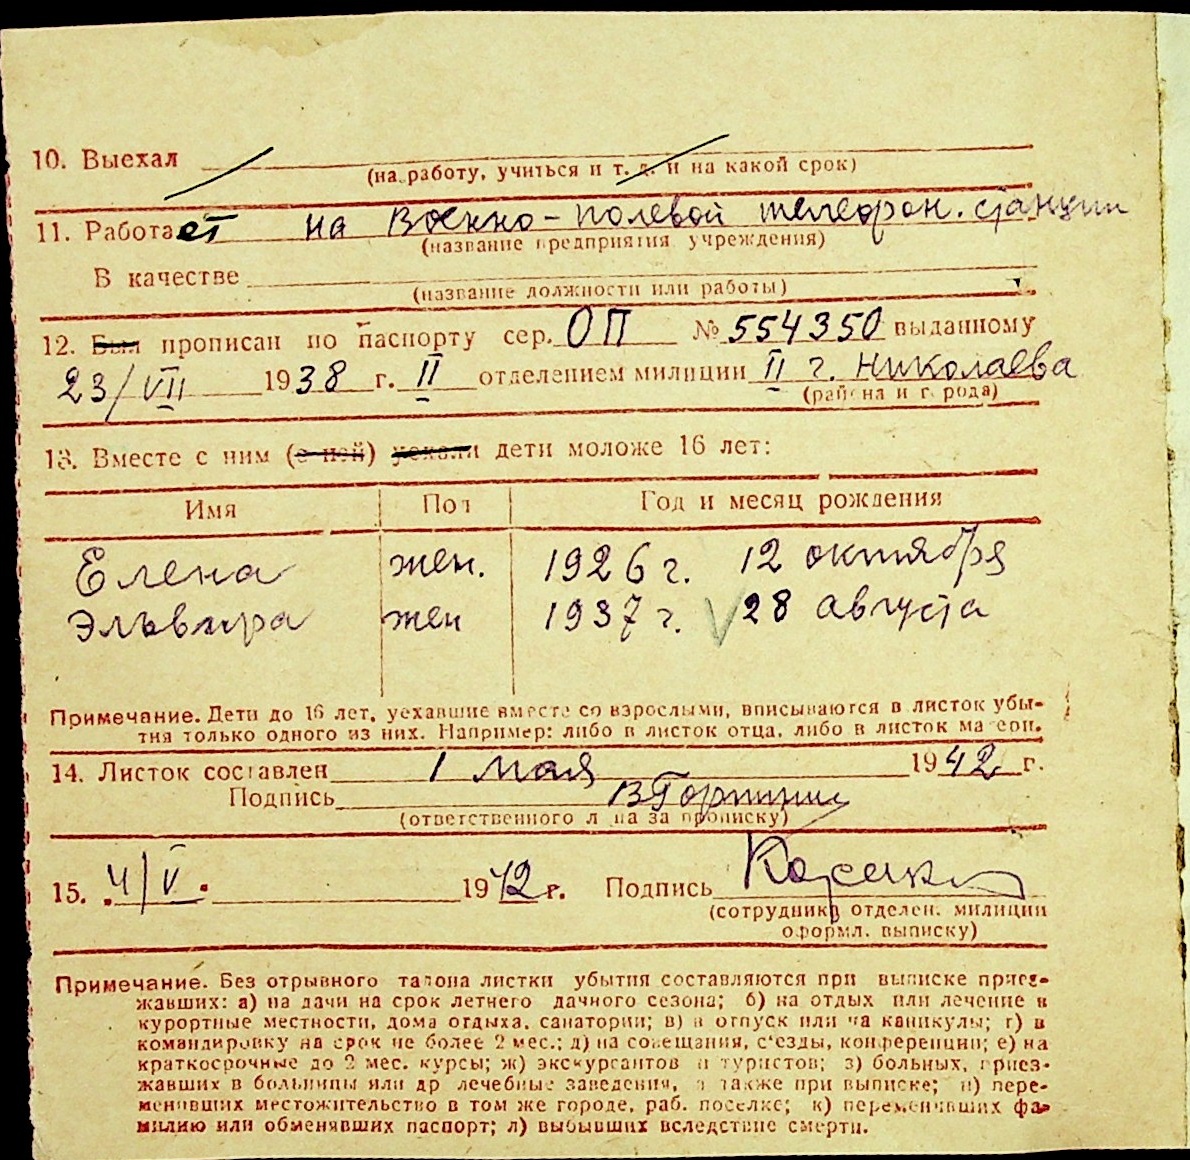 10. Выехал
(на работу, учиться и т. д. и на какой срок)
11. Работает на Военно-полевой телефон. станции
(название предприятия учреждения)
В качестве
(название должности или работы)
12. Был прописан по паспорту сер. ОП № 554350 выданному
23/VII 1938 г. II отделением милиции II г. Николаева
(района и города)
13. Вместе с ним (с ней) уехали дети моложе 16 лет:
Имя Пол Год и месяц рождения
Елена жен. 1926 г. 12 октября
Эльвира жен 1937 г. 28 августа
Примечание. Дети до 16 лет, уехавшие вместе со взрослыми, вписываются в листок убы-
тия только одного из них. Например: либо в листок отца, либо в листок матери.
14. Листок составлен 1 мая 1942 г.
Подпись
(ответственного лица за прописку)
15. 4/V. 1942 г. Подпись
(сотрудника отделен. милиции
оформл. выписку)
Примечание. Без отрывного талона листки убытия составляются при выписке приез-
жавших: а) на дачи на срок летнего дачного сезона; б) на отдых или лечение в
курортные местности, дома отдыха, санатории; в) в отпуск или на каникулы; г) в
командировку на срок не более 2 мес.; д) на совещания, съезды, конференции; е) на
краткосрочные до 2 мес. курсы; ж) экскурсантов и туристов; з) больных, приез-
жавших в больницы или др лечебные заведения, а также при выписке; и) пере-
менивших местожительство в том же городе, раб. поселке; к) переменивших фа-
милию или обменявших паспорт; л) выбывших вследствие смерти.